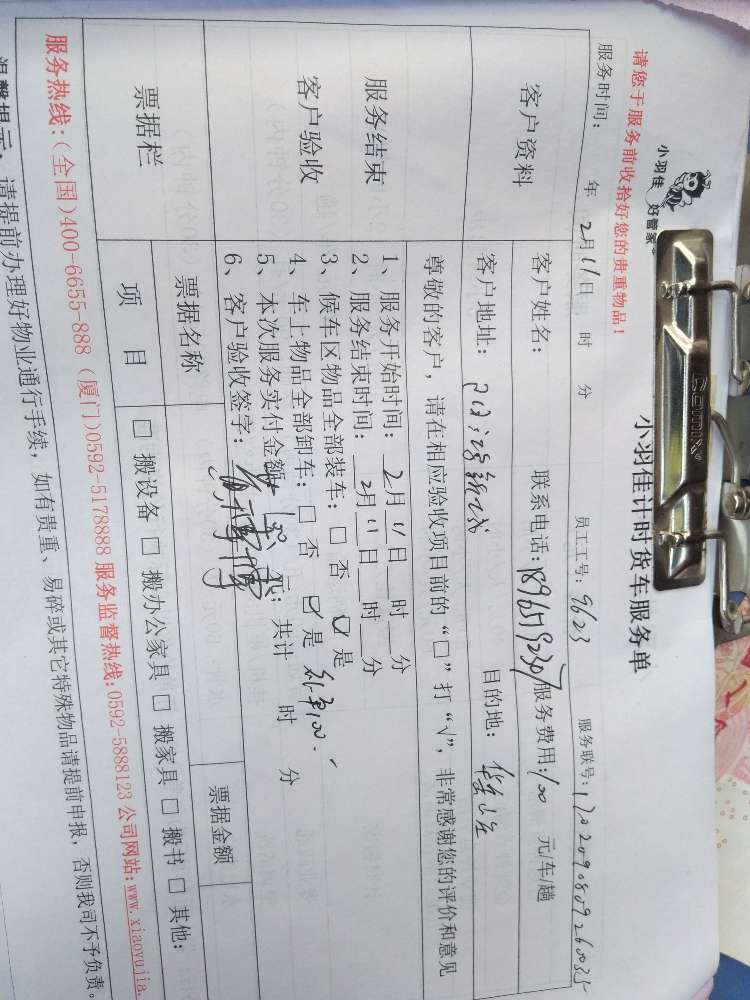 小羽佳 好管家
请您于服务前收拾好您的贵重物品！
小羽佳计时货车服务单
服务时间： 年 2月11日 时 分 员工工号：9623 服务联号：
客户资料 客户姓名： 联系电话：18965192307 服务费用：100 元/车/趟
客户地址： 目的地：
尊敬的客户，请在相应验收项目前的“□”打“√”，非常感谢您的评价和意见
服务结束
客户验收
1、服务开始时间：2月11日 时 分
2、服务结束时间：2月11日 时 分
3、候车区物品全部装车：□ 否 ☑ 是
4、车上物品全部卸车：□ 否 ☑ 是
5、本次服务实付金额 元；共计 时 分
6、客户验收签字：
票据栏 票据名称 票据金额
项 目 □ 搬设备 □ 搬办公家具 □ 搬家具 □ 搬书 □ 其他：
服务热线：(全国)400-6655-888 (厦门)0592-5178888 服务监督热线：0592-5888123 公司网站：www.xiaoyujia.
温馨提示：请提前办理好物业通行手续，如有贵重、易碎或其它特殊物品请提前申报，否则我司不予负责。